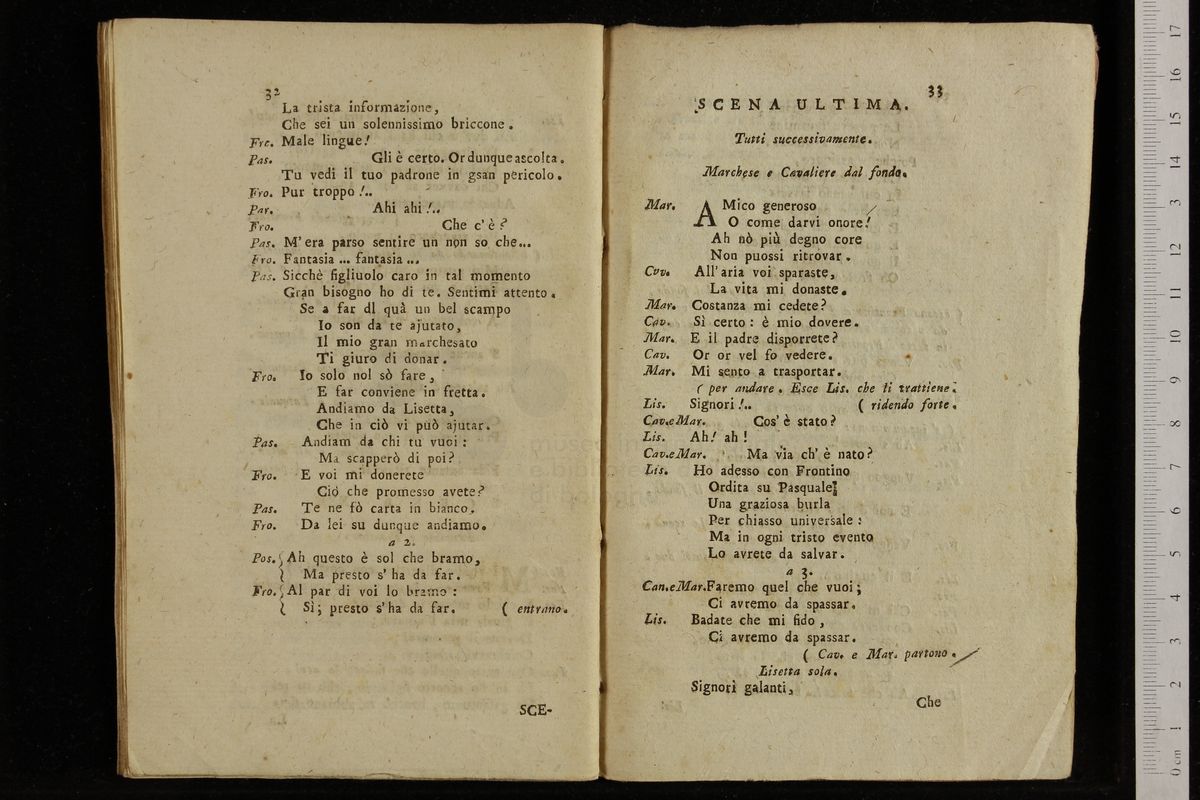 32
La trista informazione,
Che sei un solennissimo briccone.
Fro. Male lingue!
Pas. Gli è certo. Or dunque ascolta.
Tu vedi il tuo padrone in gsan pericolo.
Fro. Pur troppo!..
Par. Ahi ahi!..
Fro. Che c'è?
Pas. M'era parso sentire un non so che...
Fro. Fantasia ... fantasia ...
Pas. Sicchè figliuolo caro in tal momento
Gran bisogno ho di te. Sentimi attento.
Se a far dl quà un bel scampo
Io son da te ajutato,
Il mio gran marchesato
Ti giuro di donar.
Fro. Io solo nol sò fare,
E far conviene in fretta.
Andiamo da Lisetta,
Che in ciò vi può ajutar.
Pas. Andiam da chi tu vuoi:
Ma scapperò di poi?
Fro. E voi mi donerete
Ciò che promesso avete?
Pas. Te ne fò carta in bianco.
Fro. Da lei su dunque andiamo.
a 2.
Pos. { Ah questo è sol che bramo,
{ Ma presto s'ha da far.
Fro. { Al par di voi lo bramo:
{ Sì; presto s'ha da far. ( entrano.
SCE-
33
SCENA ULTIMA.
Tutti successivamente.
Marchese e Cavaliere dal fondo.
Mar. AMico generoso
O come darvi onore!
Ah nò più degno core
Non puossi ritrovar.
Cvv. All'aria voi sparaste,
La vita mi donaste.
Mar. Costanza mi cedete?
Cav. Sì certo: è mio dovere.
Mar. E il padre disporrete?
Cav. Or or vel fo vedere.
Mar. Mi sento a trasportar.
( per andare. Esce Lis. che li trattiene.
Lis. Signori!.. ( ridendo forte.
Cav.eMar. Cos' è stato?
Lis. Ah! ah!
Cav.eMar. Ma via ch' è nato?
Lis. Ho adesso con Frontino
Ordita su Pasquale
Una graziosa burla
Per chiasso universale:
Ma in ogni tristo evento
Lo avrete da salvar.
a 3.
Can.eMar. Faremo quel che vuoi;
Ci avremo da spassar.
Lis. Badate che mi fido,
Ci avremo da spassar.
( Cav. e Mar. partono.
Lisetta sola.
Signori galanti,
Che
0 cm 1 2 3 4 5 6 7 8 9 10 11 12 13 14 15 16 17